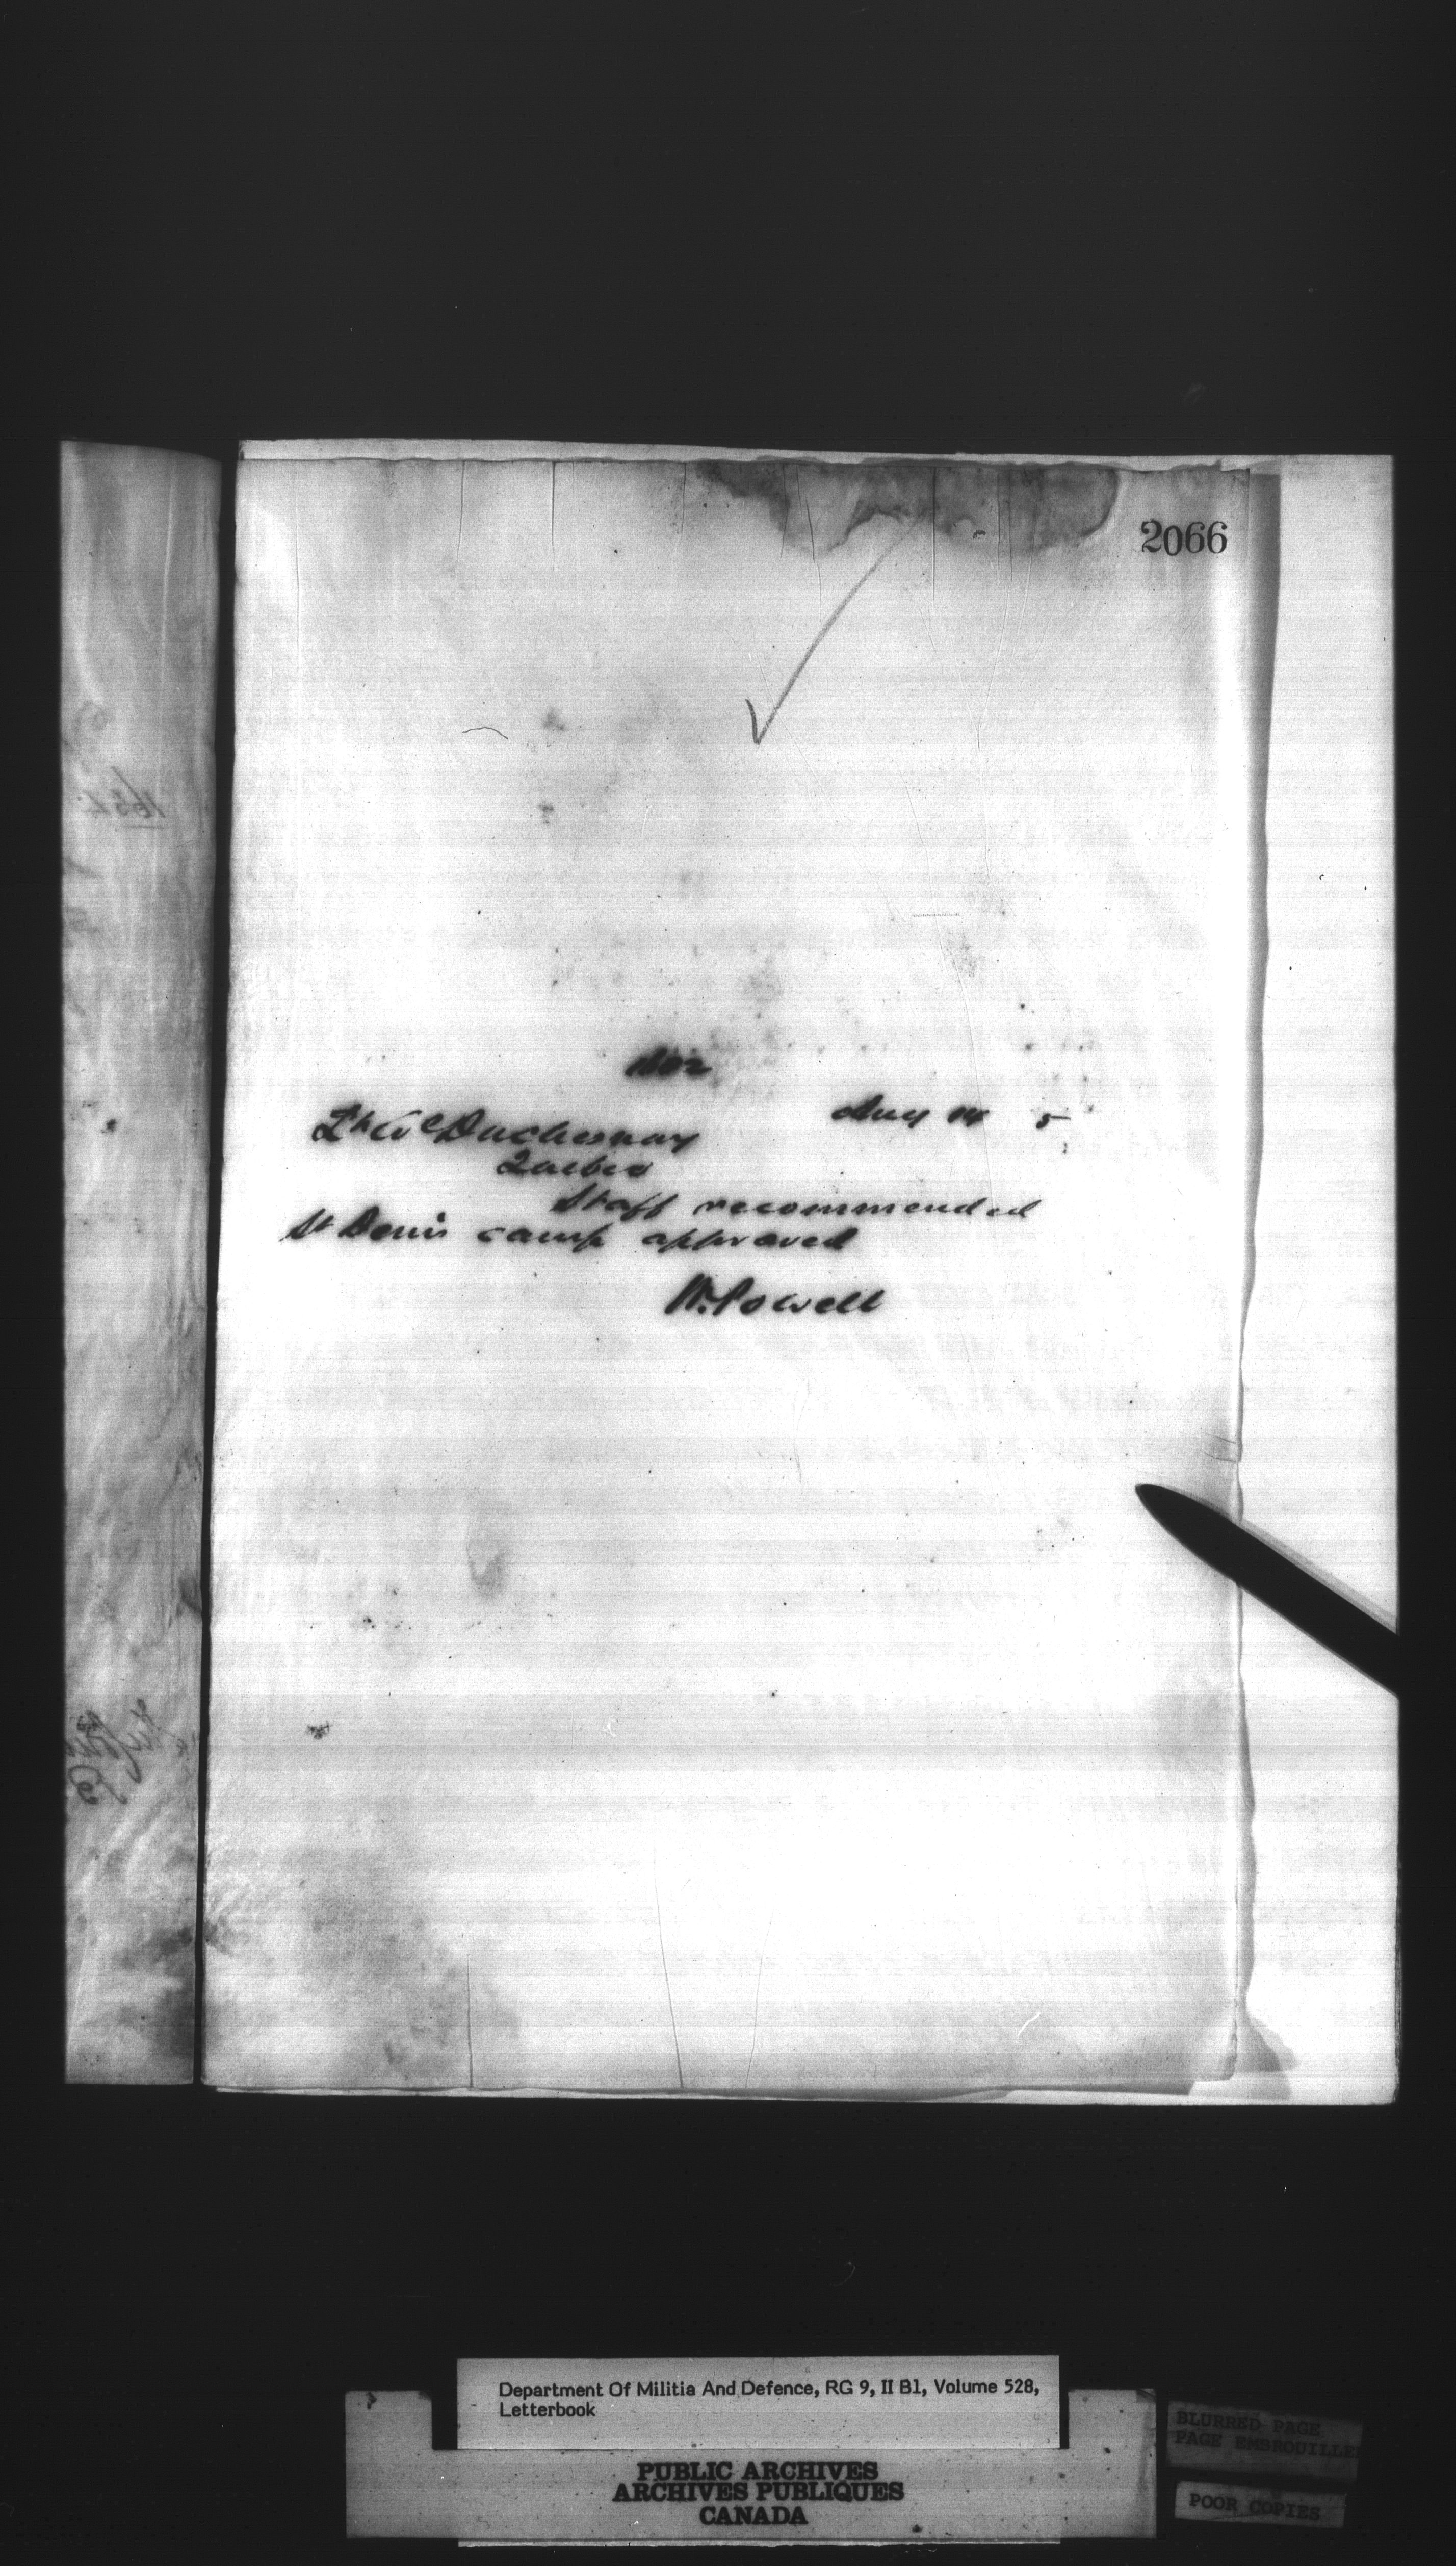 2066
Aug 14 5
Lt Col Duchesnay
Quebec
Staff recommended
St Denis camp approved
W. Powell
Department Of Militia And Defence, RG 9, II B1, Volume 528,
Letterbook
PUBLIC ARCHIVES
ARCHIVES PUBLIQUES
CANADA
BLURRED PAGE
PAGE EMBROUILLE
POOR COPIES